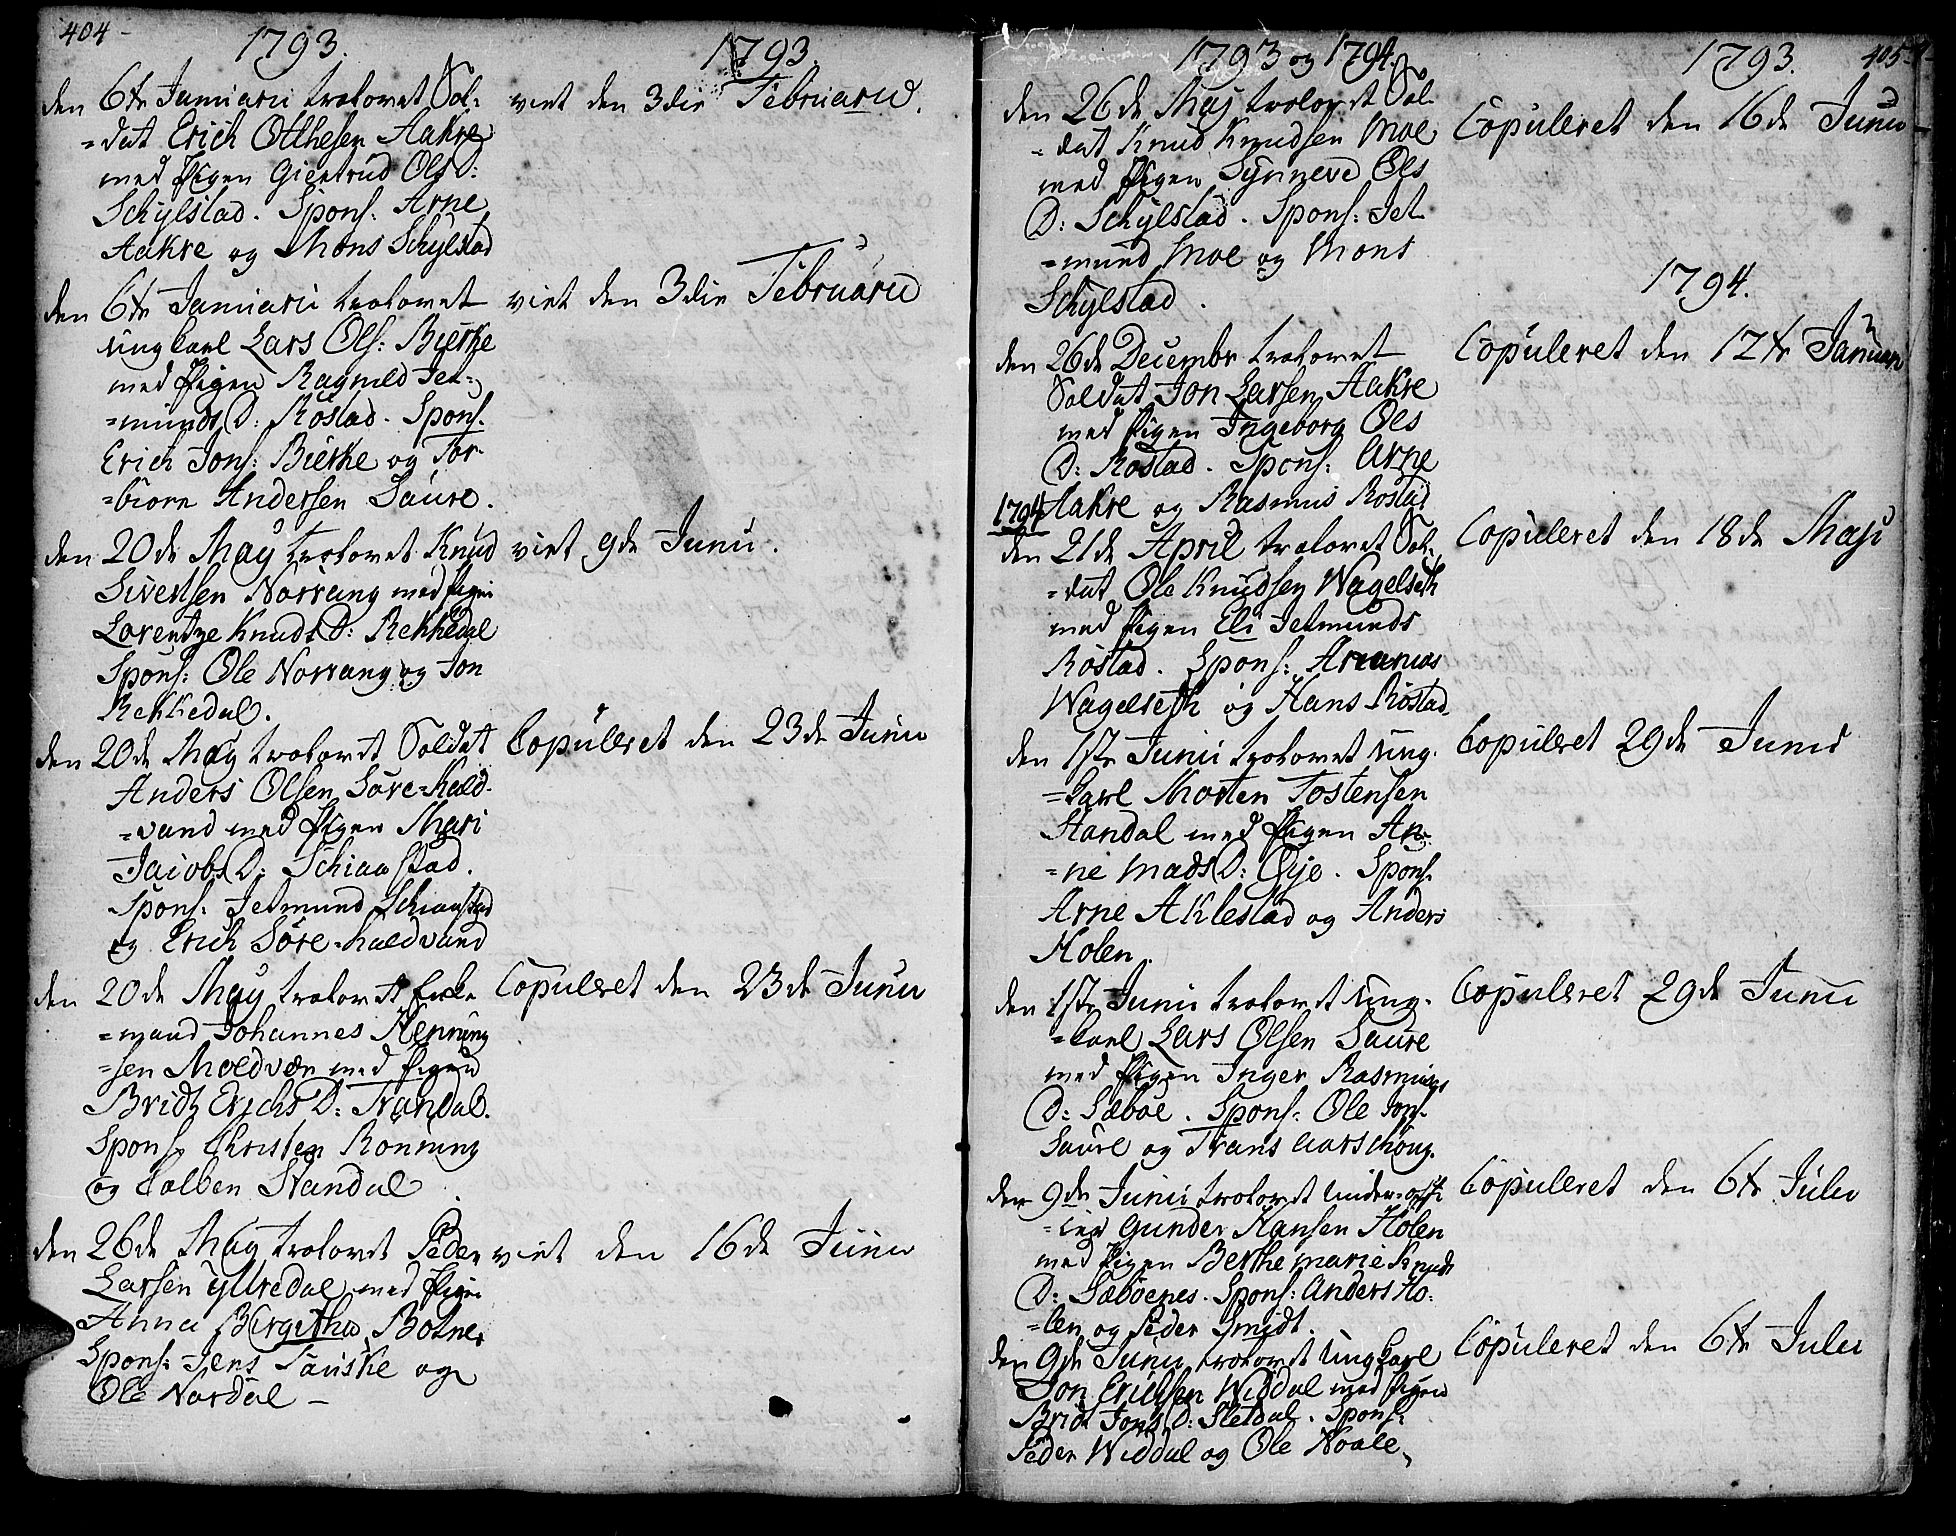 404 -
1793.
1793.
den 6te Januarii trolovet Sol-
=dat Erich Otthesen Aakre
med Pigen Giertrud Ols D:
Schylstad. Spons: Arne
Aakre og Mons Schylstad
viet den 3die Februarii.
den 6te Januarii trolovet
ungkarl Lars Ols: Bierke
med Pigen Ragnild Jet-
=munds D: Röstad. Spons.
Erich Jons: Bierke og Tor-
=biorn Andersen Saure.
viet den 3die Februarii
den 20de May trolovet Knud
Sivertsen Norvang med Pigen
Lorentze Knuds D: Rekkedal
Spons: Ole Norvang og Jon
Rekkedal.
viet 9de Junii.
den 20de May trolovet Soldat
Anders Olsen Söre=hald-
=vand med Pigen Mari
Jacobs D: Schiaastad.
Spons. Jetmund Schiaastad
og Erich Söre=haldvand
Copuleret den 23de Junii
den 20de May trolovet Enke
=mand Johannes Henning
=sen Moldvær med Pigen
Bridt Erichs D: Standal.
Spons. Christen Rönning
og Colben Standal
Copuleret den 23de Junii
den 26de May trolovet Peder
Larsen Ytredal med Pigen
Anna Birgitha Botner
Spons: Jens Tauske og
Ole Nordal -
viet den 16de Junii
1793 og 1794.
1793.
405
den 26de Maj trolovet Sol-
=dat Knud Knudsen Moe
med Pigen Synneve Ols
D: Schylstad. Spons: Jet-
=mund Moe og Mons
Schylstad.
Copuleret den 16de Junii
1794.
den 26de Decembr trolovet
Soldat Jon Larsen Aakre
med Pigen Ingeborg Ols
D: Röstad. Spons: Arne
Aakre og Rasmus Röstad
Copuleret den 12te Januari
1794
den 21de April trolovet Sol-
=dat Ole Knudsen Wagelseth
med Pigen Eli Jetmunds
Röstad. Spons:
Wagelseth og Hans Röstad.
Copuleret den 18de Maji
den 1ste Junii trolovet ung-
=karl Morten Tostensen
Standal med Pigen An-
=ne Mads D: Öije. Spons.
Arne Aklestad og Anders
Holen.
Copuleret 29de Junii
den 1ste Junii trolovet ung-
=karl Lars Olsen Saure
med Pigen Inger Rasmus
D: Sæböe. Spons: Ole Jons.
Saure og Frans Aarschoug.
Copuleret 29de Junii
den 9de Junii trolovet Under=offi
=cer Gunder Hansen Holen
med Pigen Berthe marie Knuds
D: Sæböenes. Spons: Anders Ho-
=len og Peder Smidt.
Copuleret den 6te Julii
den 9de Junii trolovet Ungkarl
Jon Erichsen Widdal med Pigen
Bridt Jons D: Sletdal. Spons:
Peder Widdal og Ole Noale.
Copuleret den 6te Julii